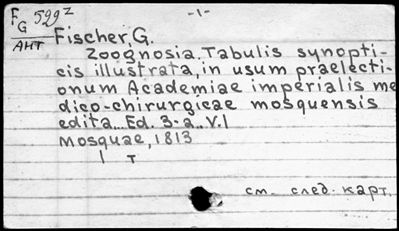 F 599²
G
АНТ
-1-
Fischer, G.
Zoognosia. Tabulis synopti-
cis illustrata, in usum praelecti-
onum Academiae imperialis me
dico-chirurgicae mosquensis
edita... Ed. 3-a.. V. I
Mosquae, 1813
1 т
см. след. карт.